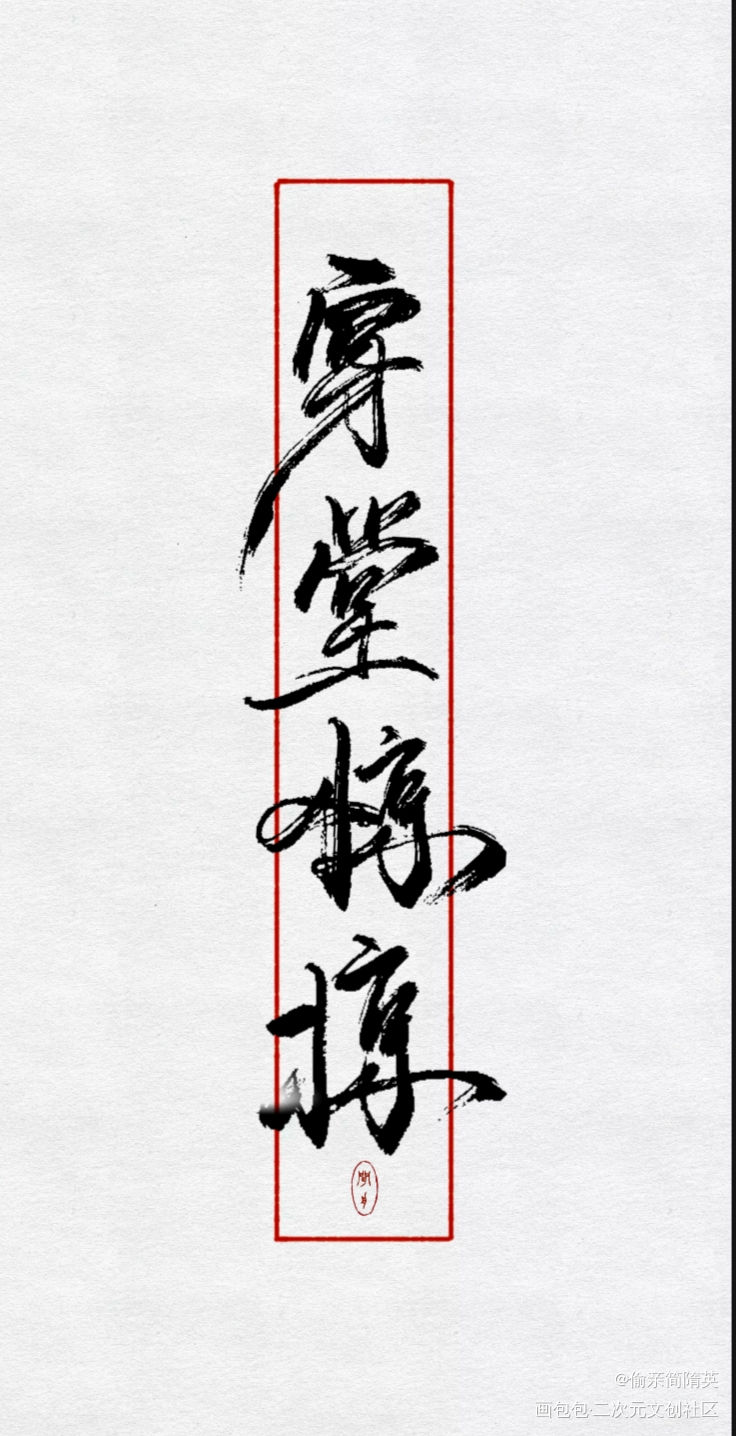 穿堂惊掠
@偷亲简隋英
画包包·二次元文创社区